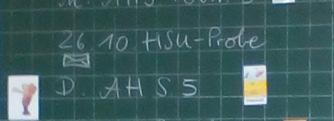 26 10 HSU-Probe
D. AH S 5